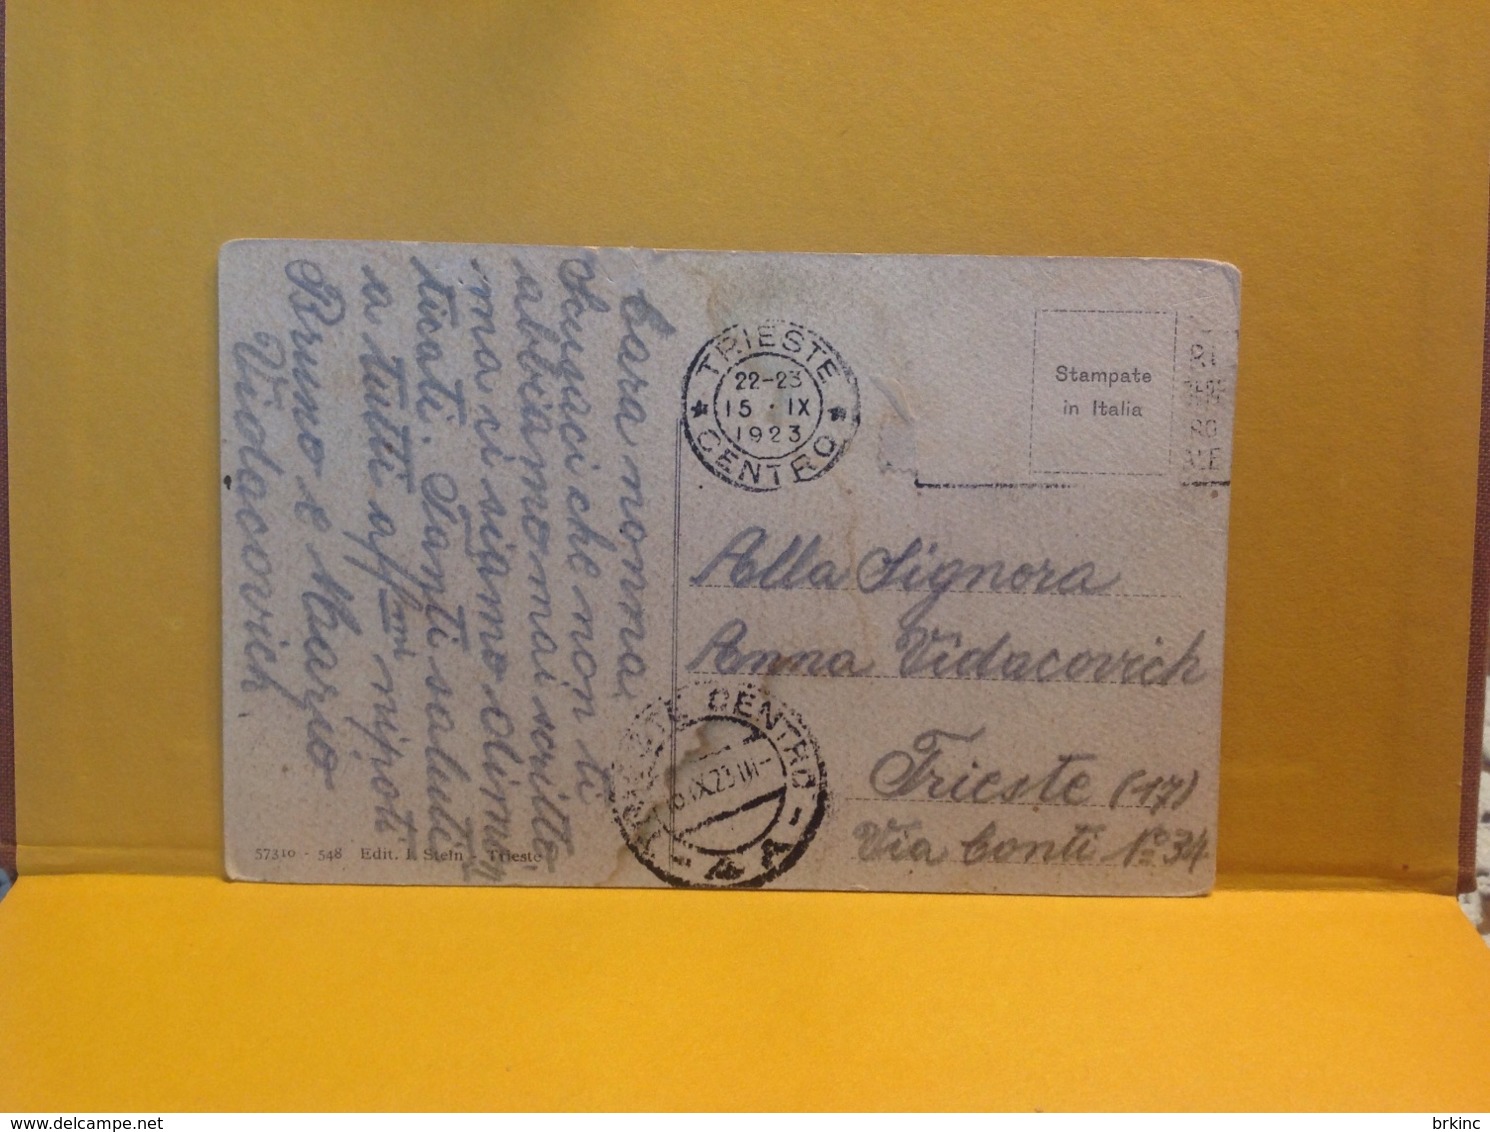 Cara nonna,
Scusaci che non ti
abbiamo mai scritto
ma ci siamo dimen
ticati. Tanti saluti
a tutti aff.mi nipoti
Bruno e Mario
Vidacovich.
57310 - 548 Edit. I. Stein - Trieste
TRIESTE
22-23
15 · IX
1923
CENTRO
Stampate
in Italia
RO
ALE
Alla Signora
Anna Vidacovich
Trieste (17)
Via Conti No 34
TRIESTE CENTRO
IX 23
brkinc